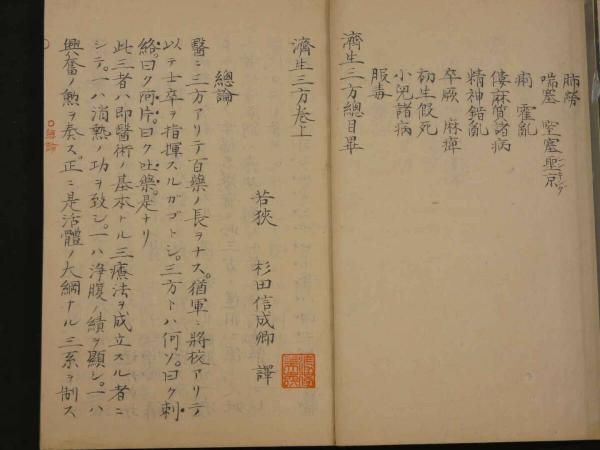 肺癆
喘塞 聖京
痢 霍亂
僂麻質諸病
精神錯亂
卒厥 麻痺
初生假死
小兒諸病
服毒
濟生三方總目畢
濟生三方卷上
若狹 杉田信成卿 譯
總論
醫ニ三方アリテ百藥ノ長ヲナス。猶軍ニ將校アリテ
以テ士卒ヲ指揮スルガゴトシ。三方トハ何ゾ。曰ク刺
絡。曰ク阿片。曰ク吐藥。是ナリ
此三者ハ即醫術ノ基本トル三療法ヲ成立スル者ニ
シテ。一ハ消熱ノ功ヲ致シ。一ハ淨腹ノ績ヲ顯シ。一ハ
興奮ノ勲ヲ奏ス。正ニ是活體ノ大綱ナル三系ヲ制ス
總論